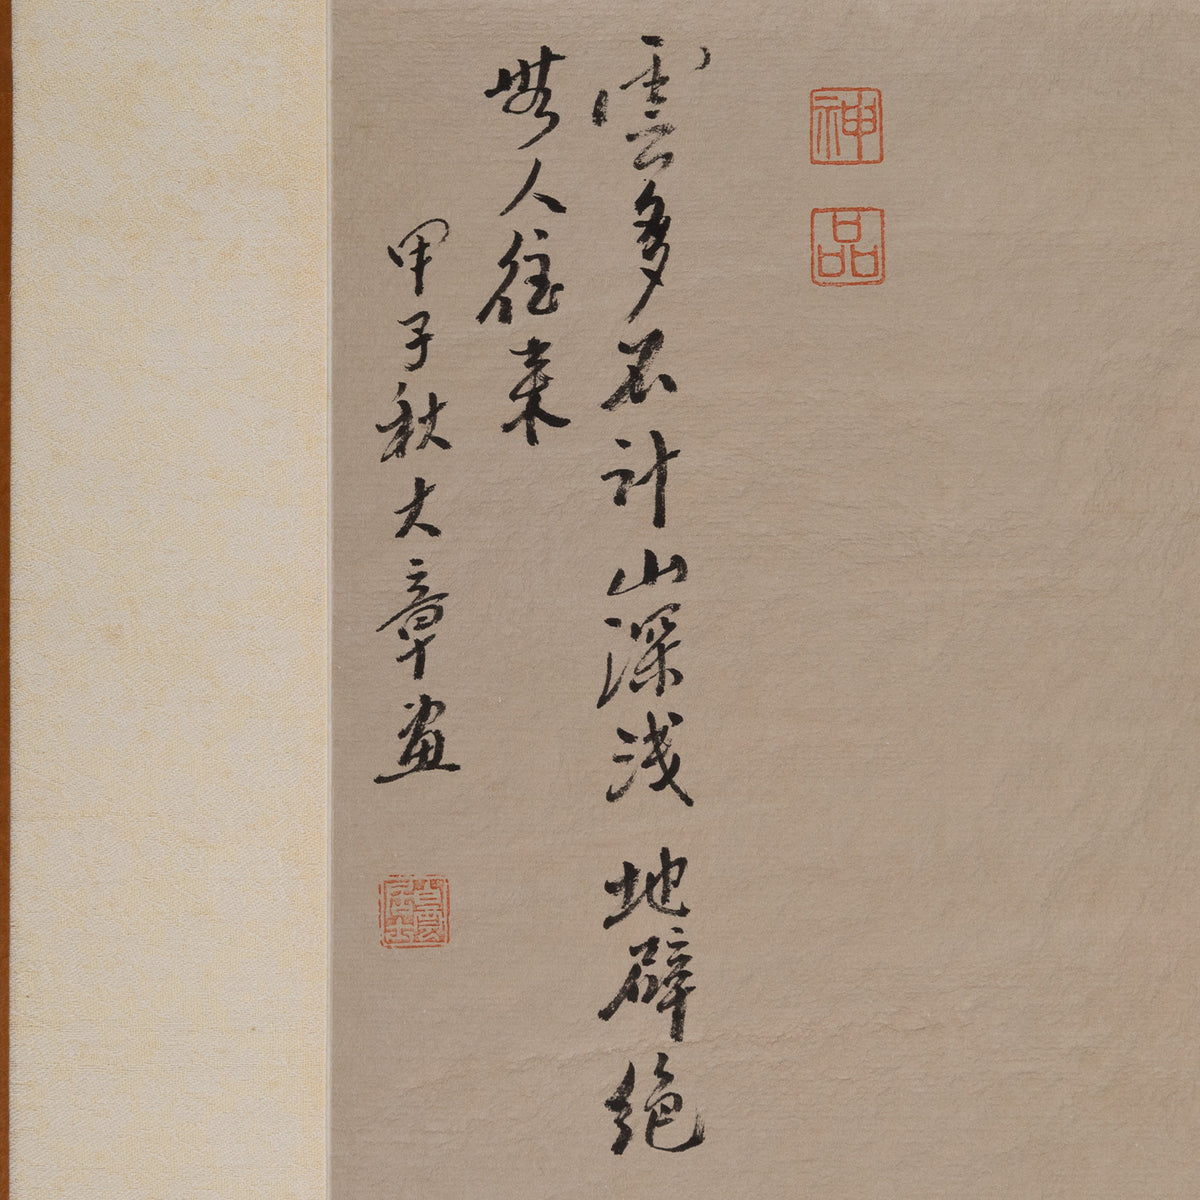 神
品
雲多不計山深浅 地辟絶
無人往来
甲子秋大章畫